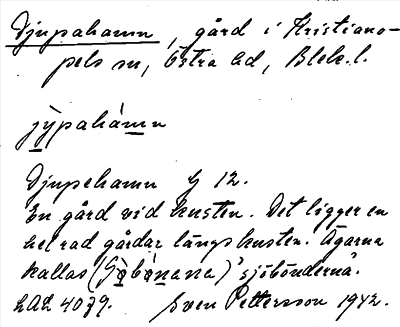 Djupahamn, gård i Kristiano-
pels sn, Östra hd, Blek. l.
jỳpahámn
Djupehamn G 12.
En gård vid kusten. Det ligger en
hel rad gårdar längs kusten. Ägarna
kallas (ſöbönana) "sjöbönderna".
LAL 4079. Sven Pettersson 1942.